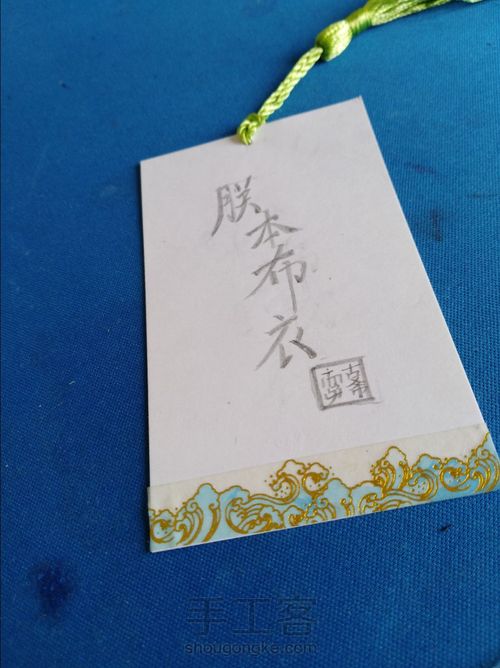 朕本布衣
手工客
shougongke.com